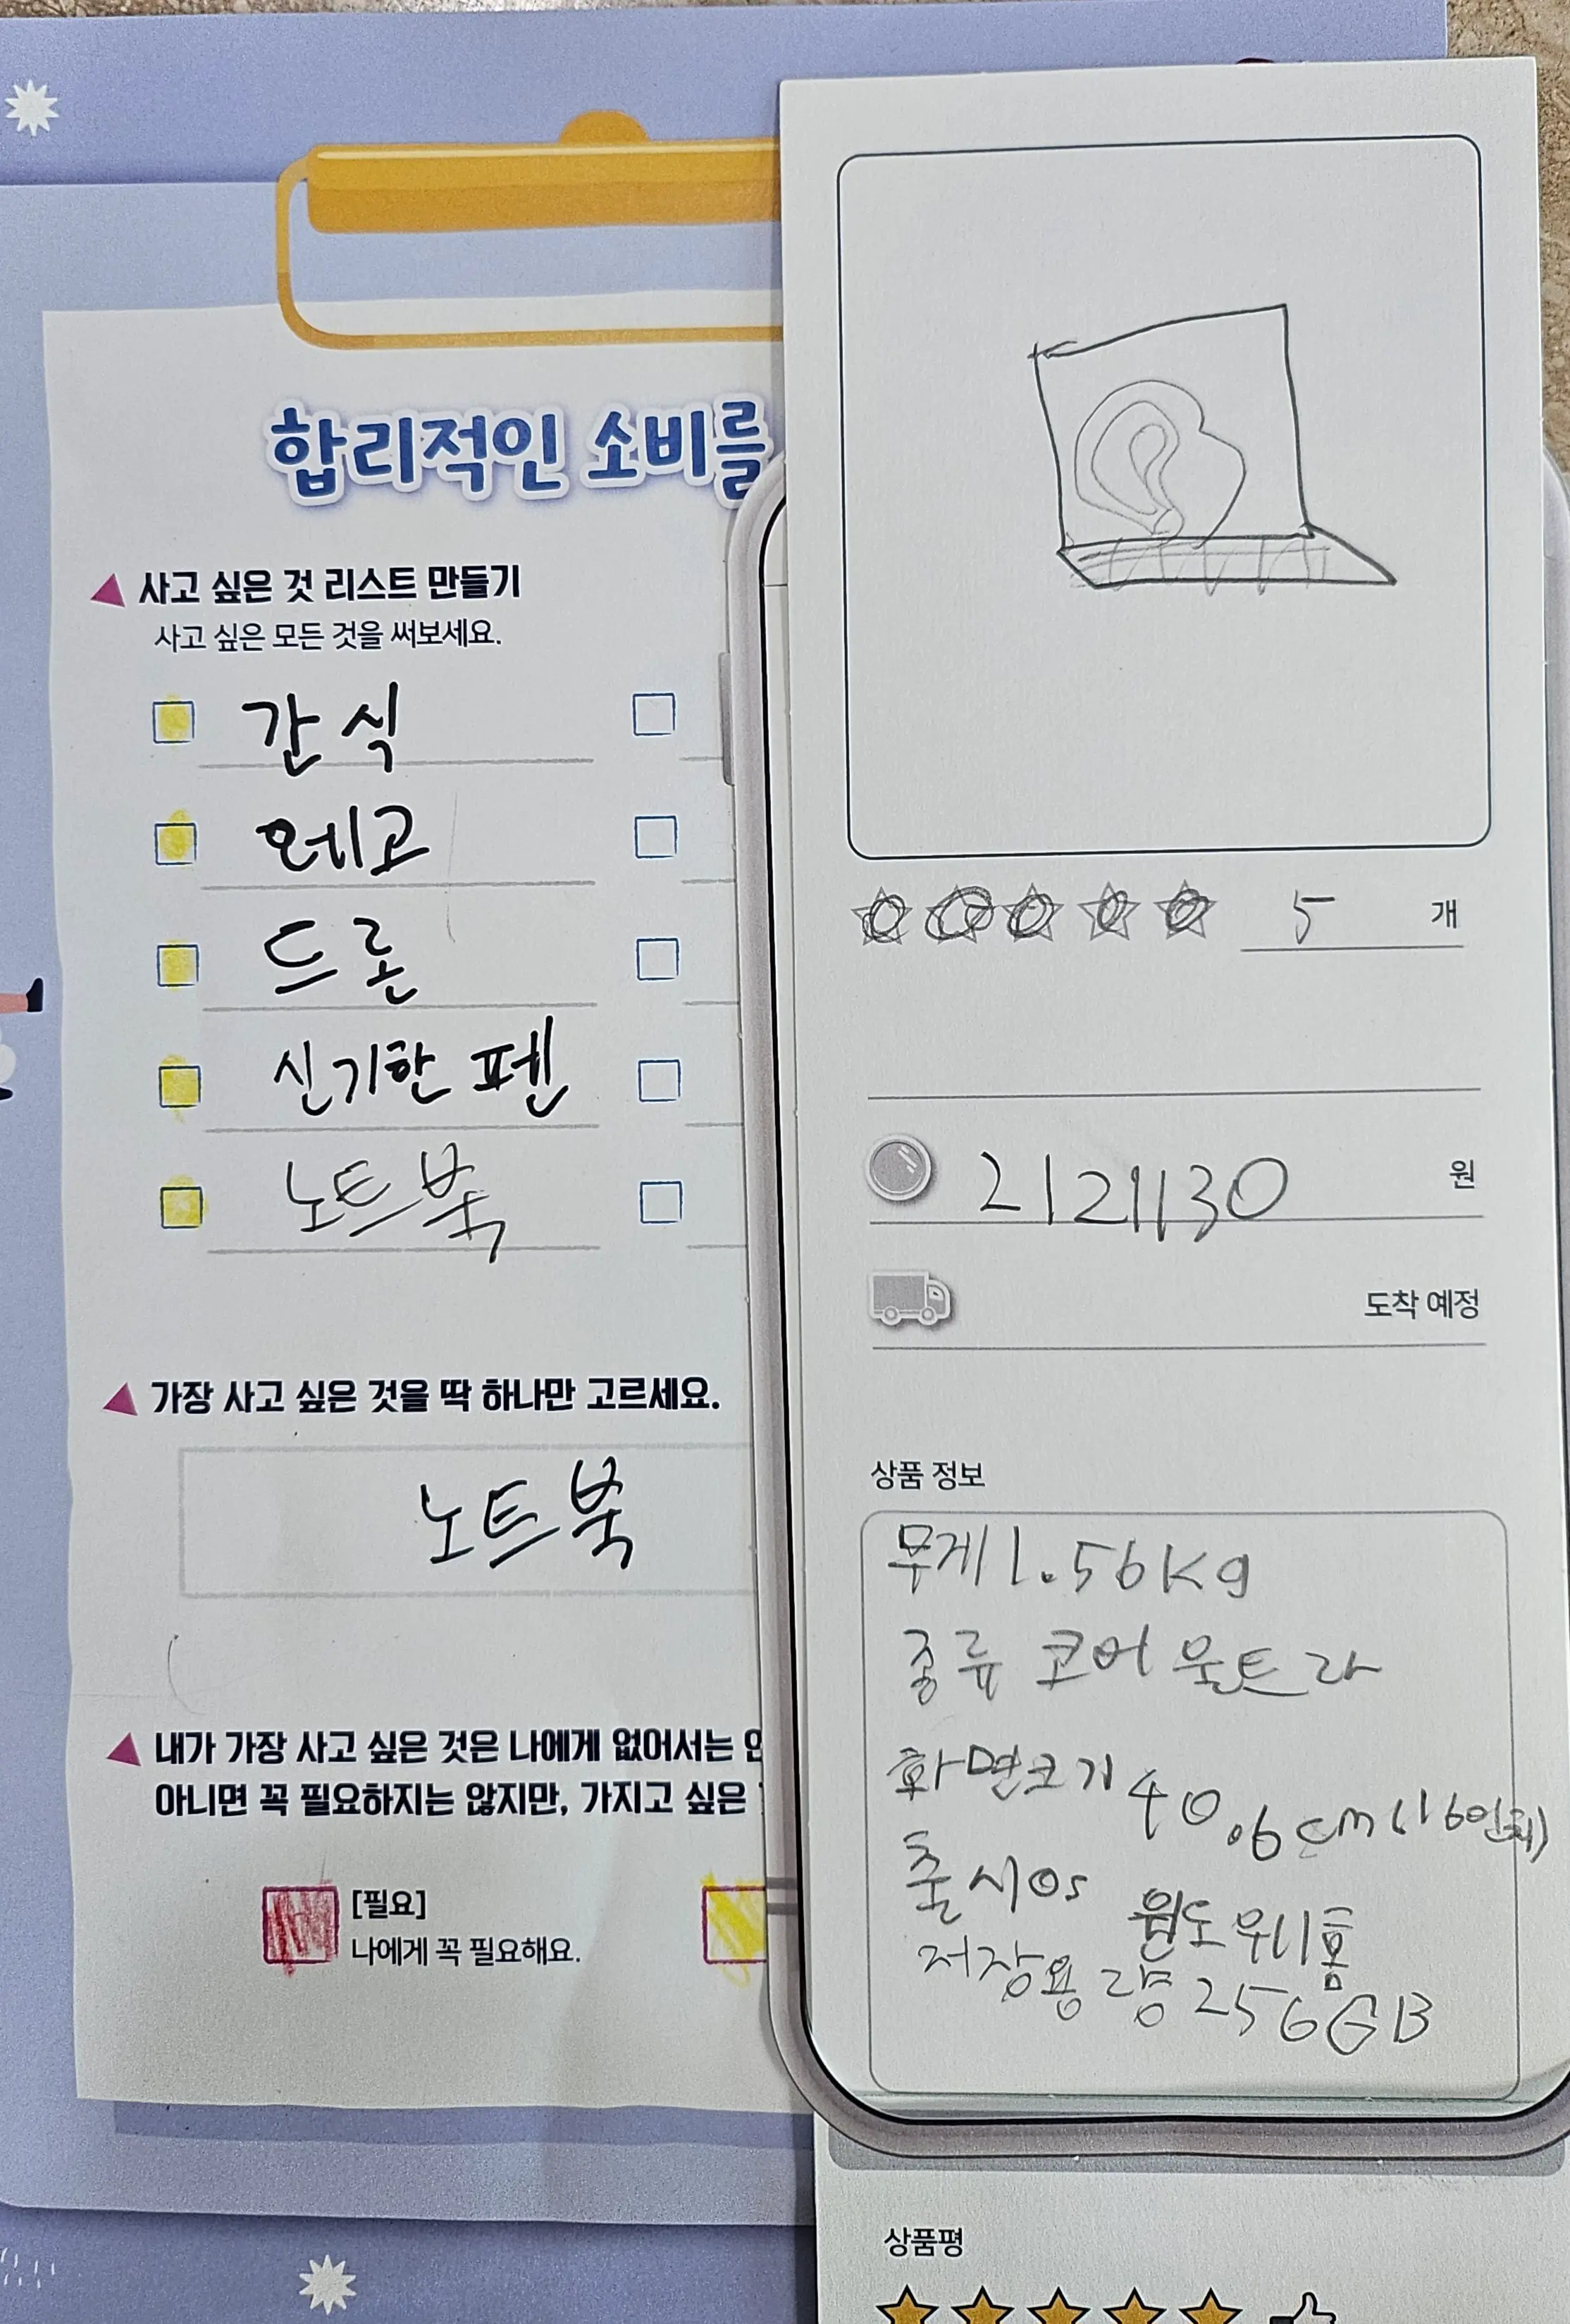 합리적인 소비를
사고 싶은 것 리스트 만들기
사고 싶은 모든 것을 써보세요.
간식
왜고
드론
신기한 펜
노트북
가장 사고 싶은 것을 딱 하나만 고르세요.
노트북
내가 가장 사고 싶은 것은 나에게 없어서는
아니면 꼭 필요하지는 않지만, 가지고 싶은
[필요]
나에게 꼭 필요해요.
5 개
2121130 원
도착 예정
상품 정보
무게 1.56Kg
종류 코어 울트라
화면크기 40.6cm (16인치)
출시Os 윈도우11홈
저장용량 256GB
상품평